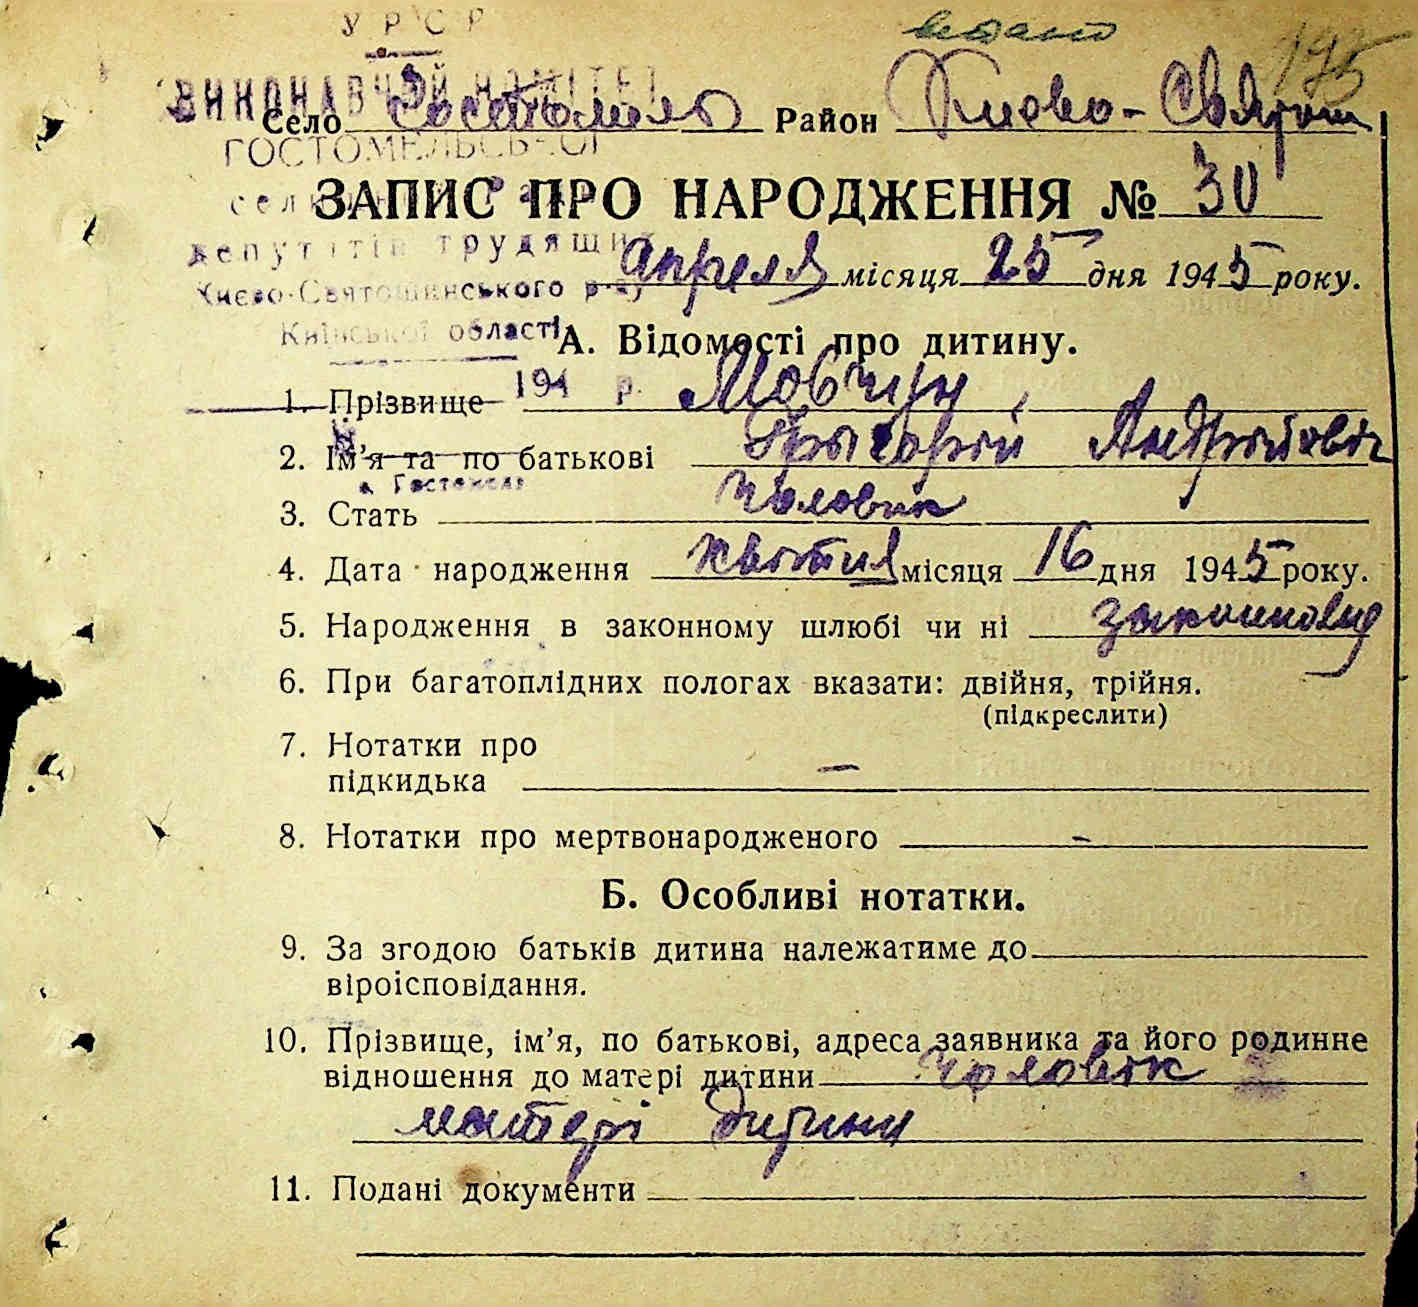 У Р С Р
видано 175
ВИКОНАВЧИЙ КОМІТЕТ
Село Гостомель Район Києво-Святош
ГОСТОМЕЛЬСЬКОЇ
ЗАПИС ПРО НАРОДЖЕННЯ № 30
депутатів трудящих
Апреля місяця 25 дня 1945 року.
Києво-Святошинського р-ну
Київської області
А. Відомості про дитину.
194 р.
1. Прізвище Мовчун
2. Ім’я та по батькові Григорій Андрійович
с. Гостомель
3. Стать Чоловік
4. Дата народження квітня місяця 16 дня 1945 року.
5. Народження в законному шлюбі чи ні
6. При багатоплідних пологах вказати: двійня, трійня.
(підкреслити)
7. Нотатки про
підкидька —
8. Нотатки про мертвонародженого -
Б. Особливі нотатки.
9. За згодою батьків дитина належатиме до
віроісповідання.
10. Прізвище, ім’я, по батькові, адреса заявника та його родинне
відношення до матері дитини чоловік
матері дитини
11. Подані документи